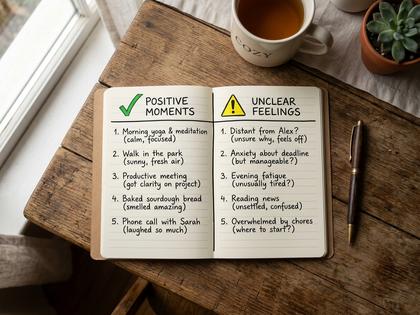 COZY
POSITIVE
MOMENTS
1. Morning yoga & meditation
(calm, focused)
2. Walk in the park
(sunny, fresh air)
3. Productive meeting
(got clarity on project)
4. Baked sourdough bread
(smelled amazing)
5. Phone call with Sarah
(laughed so much)
UNCLEAR
FEELINGS
1. Distant from Alex?
(unsure why, feels off)
2. Anxiety about deadline
(but manageable?)
3. Evening fatigue
(unusually tired?)
4. Reading news
(unsettled, confused)
5. Overwhelmed by chores
(where to start?)